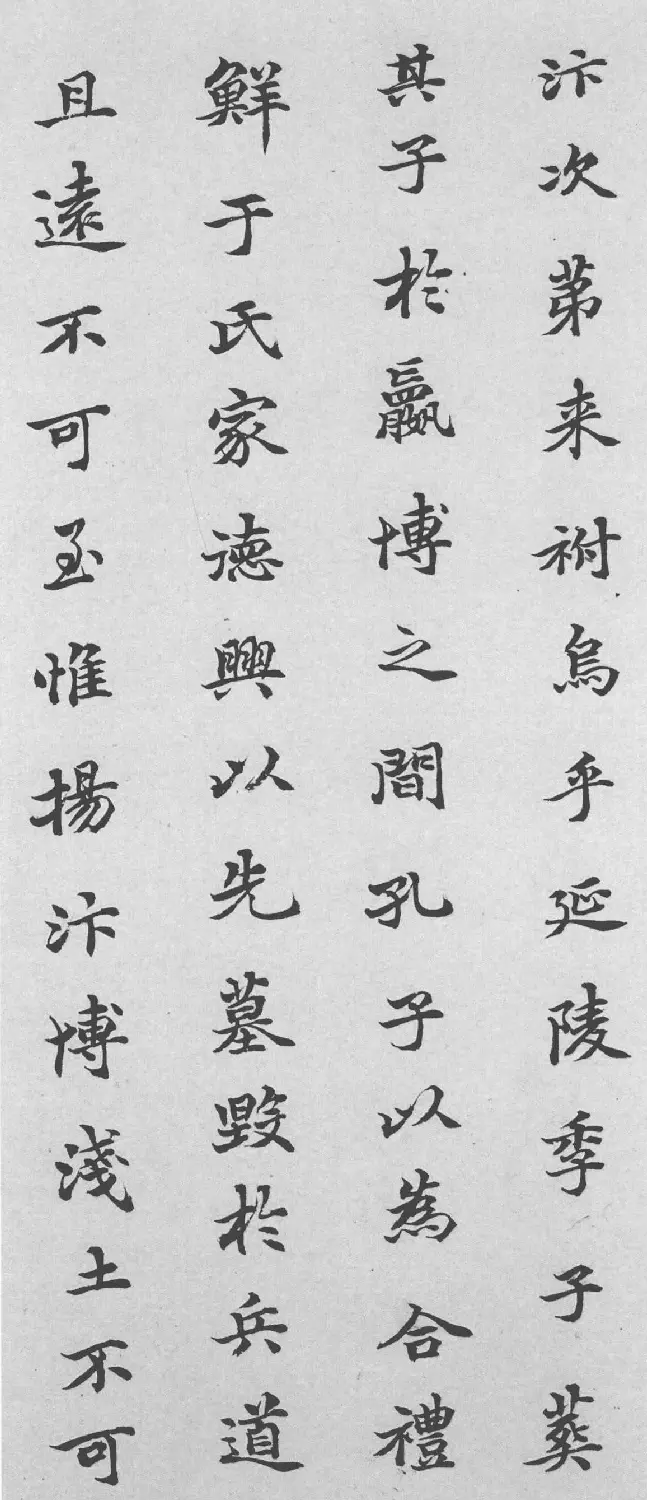 汴次苐来祔烏乎延陵季子葬
其子於嬴博之間孔子以為合禮
鮮于氏家德興以先墓毀於兵道
且遠不可至惟揚汴博淺土不可